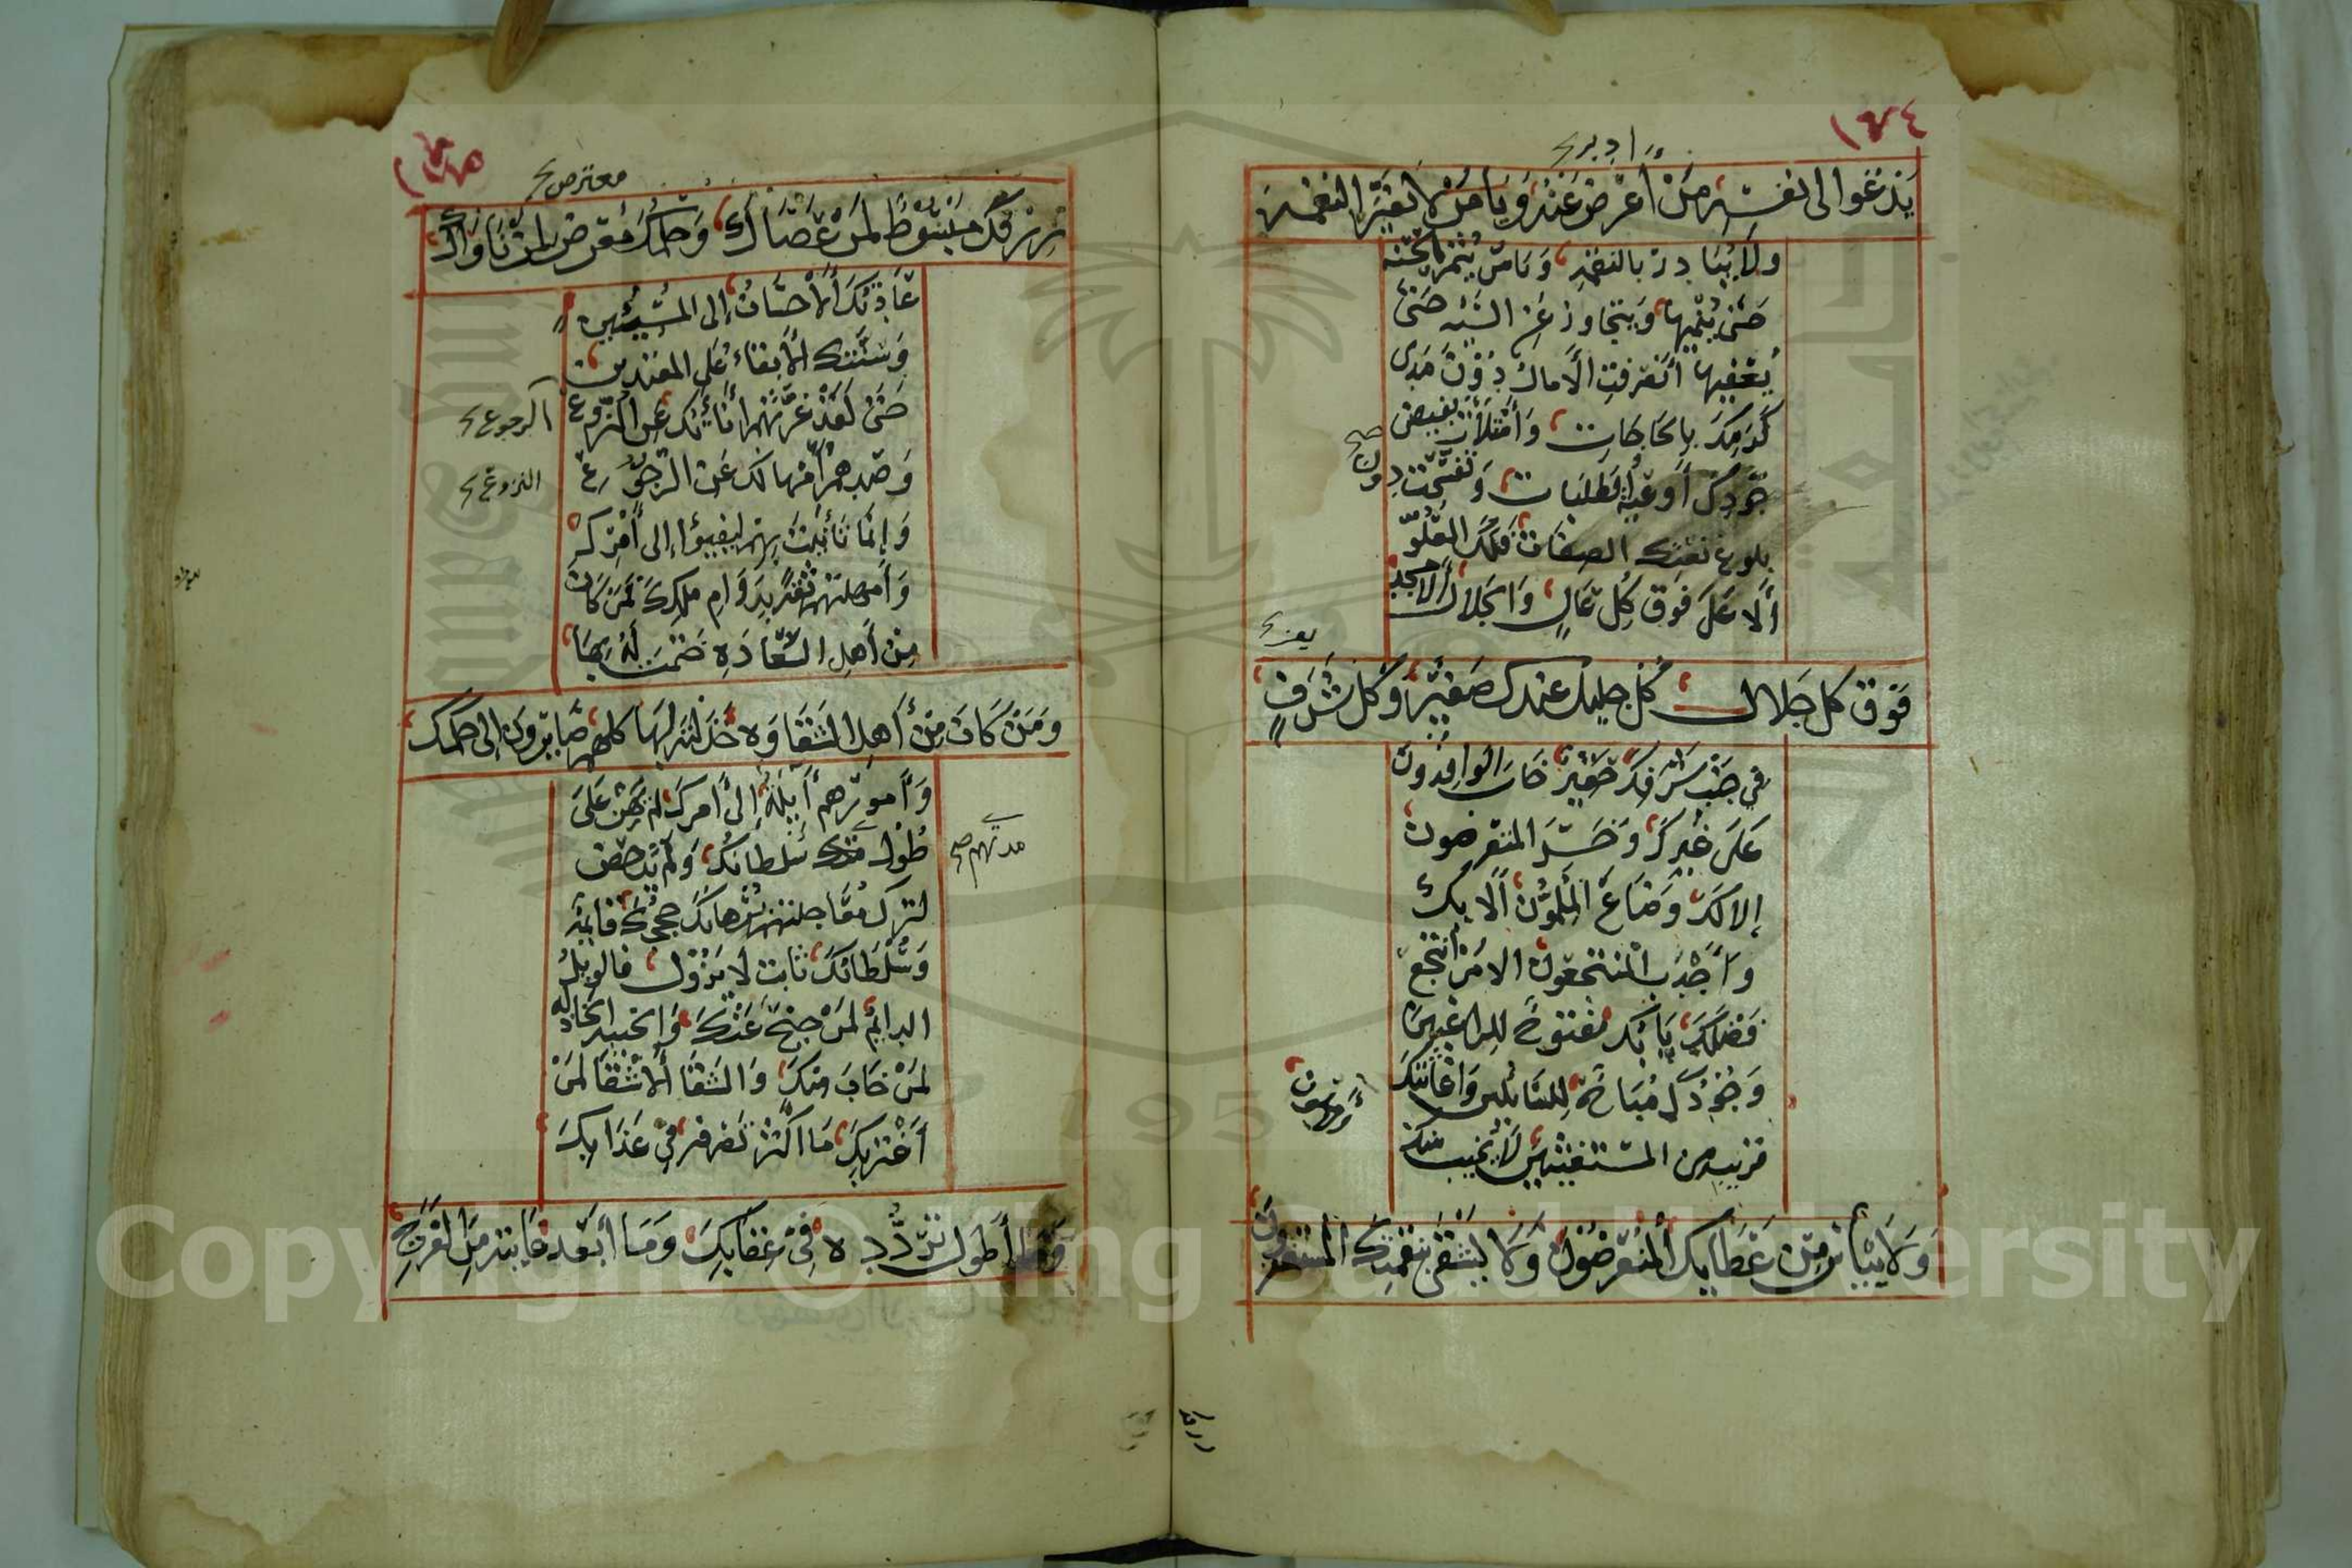 ١٧٤
أدبر
يدعوا الى نفسه من أعرض عنه ويا من لا يغير النعمة
ولا يبادر بالنقمه ويا من يثمر الحسنه
حتى ينميها ويتجاوز عن السيئه حتى
يعفيها أنصرفت الامال دون مدى
كرمك بالحاجات وأمتلأت بفيض
جودك أوعية الطلبات وتفسخت دون
بلوغ نعتك الصفات فلك العلو
ألا على فوق كل عال والجلال ألامجد
فوق كل جلال كل جليل عندك صغير وكل شرف
في جنب شرفك حقير خاب الوافدون
على غيرك وخسر المتعرضون
إلا لك وضاع الملمون ألا بك
وأجدب المنتجعون الا من أنتجع
فضلك بابك مفتوح للراغبين
وجودك مباحة للسائلين واغاثتك
قريبه من المستغيثين لا يخيب منك
ولا ييأس من عطايك ألمتعرضون ولا يشقى بنقمتك المستغفرون
١٧٥
معترض
رزقك مبسوط لمن عصاك وحلمك معرض لمن ناواك
عادتك ألاحسان إلى المسيئين
وسنتك ألأبقاء على المعتدين
حتى لقد غرتهم أناتك عن النزوع
الرجوع
وصدهم أمهالك عن الرجوع
النزوع
وإنما تأنيت بهم ليفيؤا إلى أمرك
وأمهلتهم ثقة بدوام ملكك فمن كان
من أهل السعاده ختمت له بها
ومن كان من أهل الشقاوه خذلته لها كلهم صايرون إلى حكمك
وأمورهم أيلة إلى أمرك لم يهن على
طول مدتك سلطانك ولم يدحض
مدتهم صح
لترك معاجلتهم برهانك حجتك قايمة
وسلطانك ثابت لا يزول فالويل
الدايم لمن جنح عنك والخيبه الخاذله
لمن خاب منك والشقا ألاشقا لمن
أغتر بك ما اكثر تصرفه في عذابك
وما أطول تردده في عقابك وما أبعد غايته من الفرج